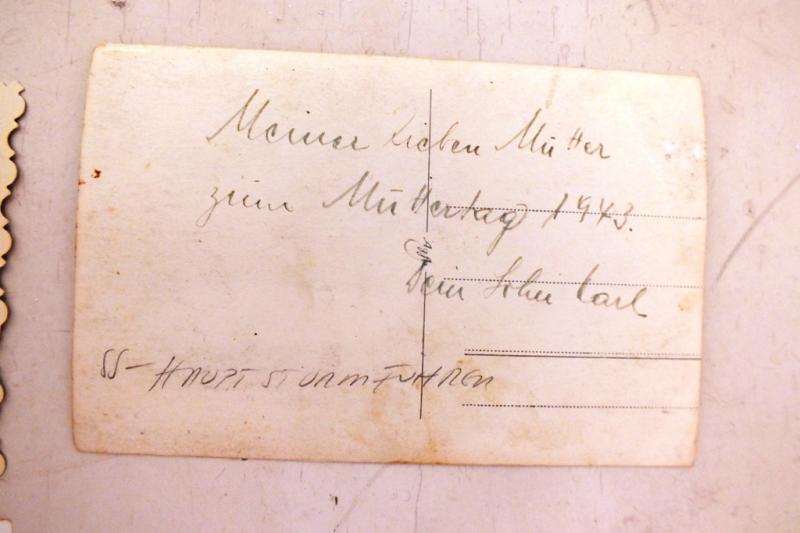 Meiner Lieben Mutter
zum Muttertag 1943.
Dein Sohn Karl
SS-HAUPTSTURMFUHRER